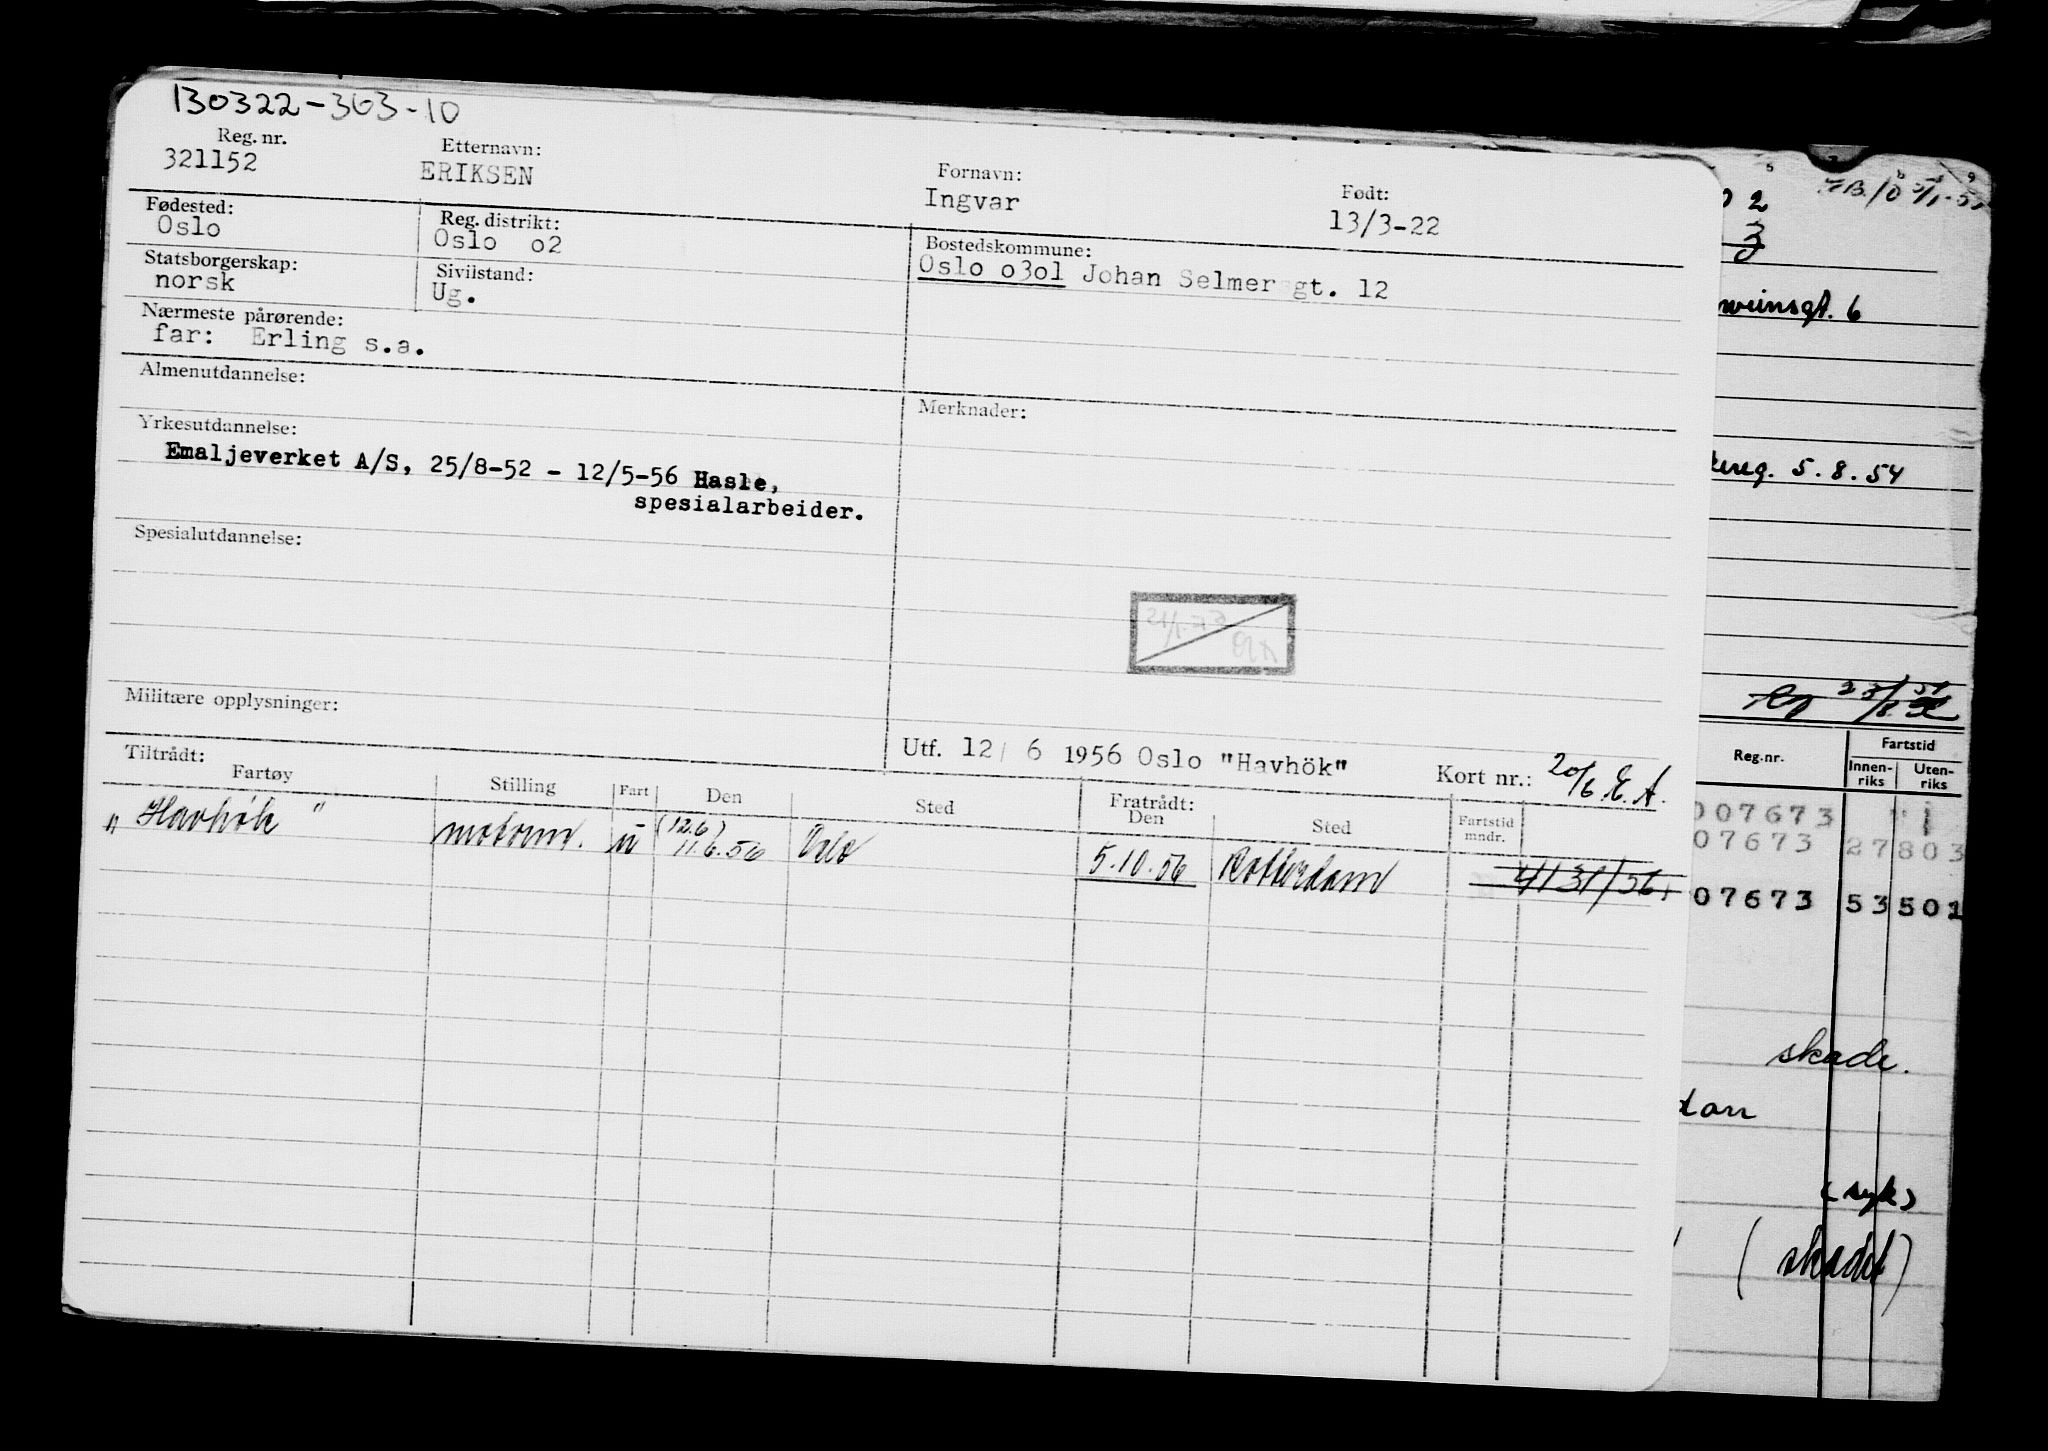 130322-303-10
Reg. nr.
321152
Etternavn:
ERIKSEN
Fornavn:
Ingvar
Født:
13/3-22
Fødested:
Oslo
Reg. distrikt:
Oslo o2
Bostedskommune:
Oslo o3o1 Johan Selmer gt. 12
Statsborgerskap:
norsk
Sivilstand:
Ug.
Nærmeste pårørende:
far: Erling s.a.
Almenutdannelse:
Merknader:
Yrkesutdannelse:
Emaljeverket A/S, 25/8-52 - 12/5-56 Hasle,
spesialarbeider.
Spesialutdannelse:
21/1-73
Militære opplysninger:
Utf. 12/ 6 1956 Oslo "Havhök"
Kort nr.: 20/6 E.A.
Tiltrådt:
Fartøy
Stilling
Fart
Den
Sted
Fratrådt:
Den
Sted
Fartstid
mndr.
"Havhök" motorm. u (12.6) Oslo
11.6.56
5.10.56 Rotterdam 4/131/56
2
3
gt. 6
5.8.54
23/8
Reg.nr.
Fartstid
Innen-
riks
Uten-
riks
007673
07673 27803
07673 53501
skade.
dan
(syk)
(skadet)